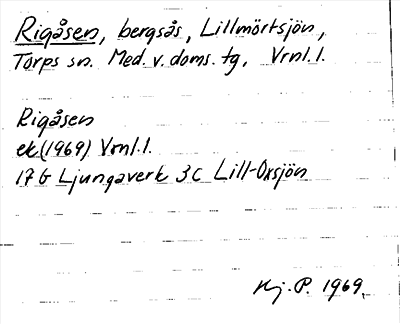 Rigåsen, bergsås, Lillmörtsjön,
Torps sn. Med. v. doms. tg, Vrnl. l.
Rigåsen
ek (1969) Vrnl. l.
17 G Ljungaverk 3c Lill-Oxsjön
Hj. P. 1969.